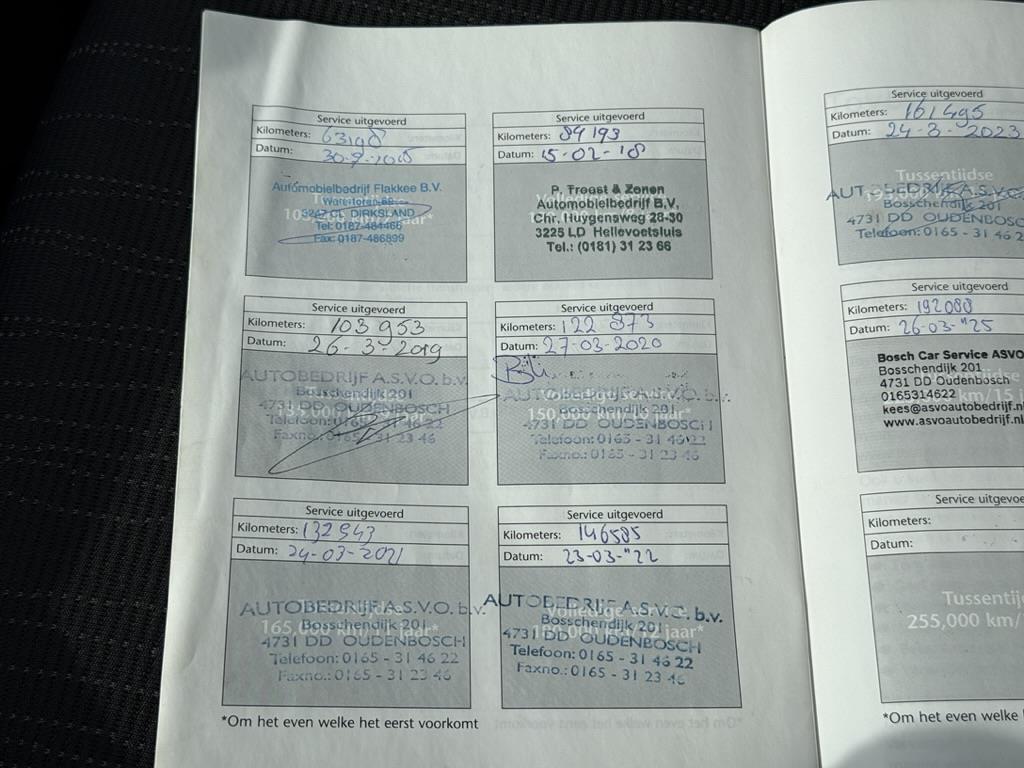 Service uitgevoerd
Kilometers: 63198
Datum: 30-9-2015
Automobielbedrijf Flakkee B.V.
Watertoren 69
3247 CL DIRKSLAND
Tel: 0187-484466
Fax: 0187-486899
Service uitgevoerd
Kilometers: 89193
Datum: 15-02-18
P. Troost & Zonen
Automobielbedrijf B.V.
Chr. Huygensweg 28-30
3225 LD Hellevoetsluis
Tel.: (0181) 31 23 66
Service uitgevoerd
Kilometers: 103 953
Datum: 26-3-2019
AUTOBEDRIJF A.S.V.O. b.v.
Bosschendijk 201
4731 DD OUDENBOSCH
Telefoon: 0165 - 31 46 22
Faxno.: 0165 - 31 23 46
Service uitgevoerd
Kilometers: 122 873
Datum: 27-03-2020
AUTOBEDRIJF A.S.V.O. b.v.
150,000 km/10 jaar*
Bosschendijk 201
4731 DD OUDENBOSCH
Telefoon: 0165 - 31 46 22
Faxno.: 0165 - 31 23 46
Service uitgevoerd
Kilometers: 132943
Datum: 24-03-2021
AUTOBEDRIJF A.S.V.O. b.v.
Bosschendijk 201
165,000 km/ jaar*
4731 DD OUDENBOSCH
Telefoon: 0165 - 31 46 22
Faxno.: 0165 - 31 23 46
Service uitgevoerd
Kilometers: 146585
Datum: 23-03-"22
AUTOBEDRIJF A.S.V.O. b.v.
Bosschendijk 201
4731 DD OUDENBOSCH
Telefoon: 0165 - 31 46 22
Faxno.: 0165 - 31 23 46
*Om het even welke het eerst voorkomt
Service uitgevoerd
Kilometers: 161495
Datum: 24-3-2023
Tussentijdse
AUTOBEDRIJF A.S.V.O
Bosschendijk 201
4731 DD OUDENBOSC
Telefoon: 0165 - 31 46 2
Service uitgevoerd
Kilometers: 192088
Datum: 26-03-"25
Bosch Car Service ASVO
Bosschendijk 201
4731 DD Oudenbosch
0165314622
kees@asvoautobedrijf.nl
www.asvoautobedrijf.nl
Service uitgevoe
Kilometers:
Datum:
Tussentij
255,000 km/
*Om het even welke